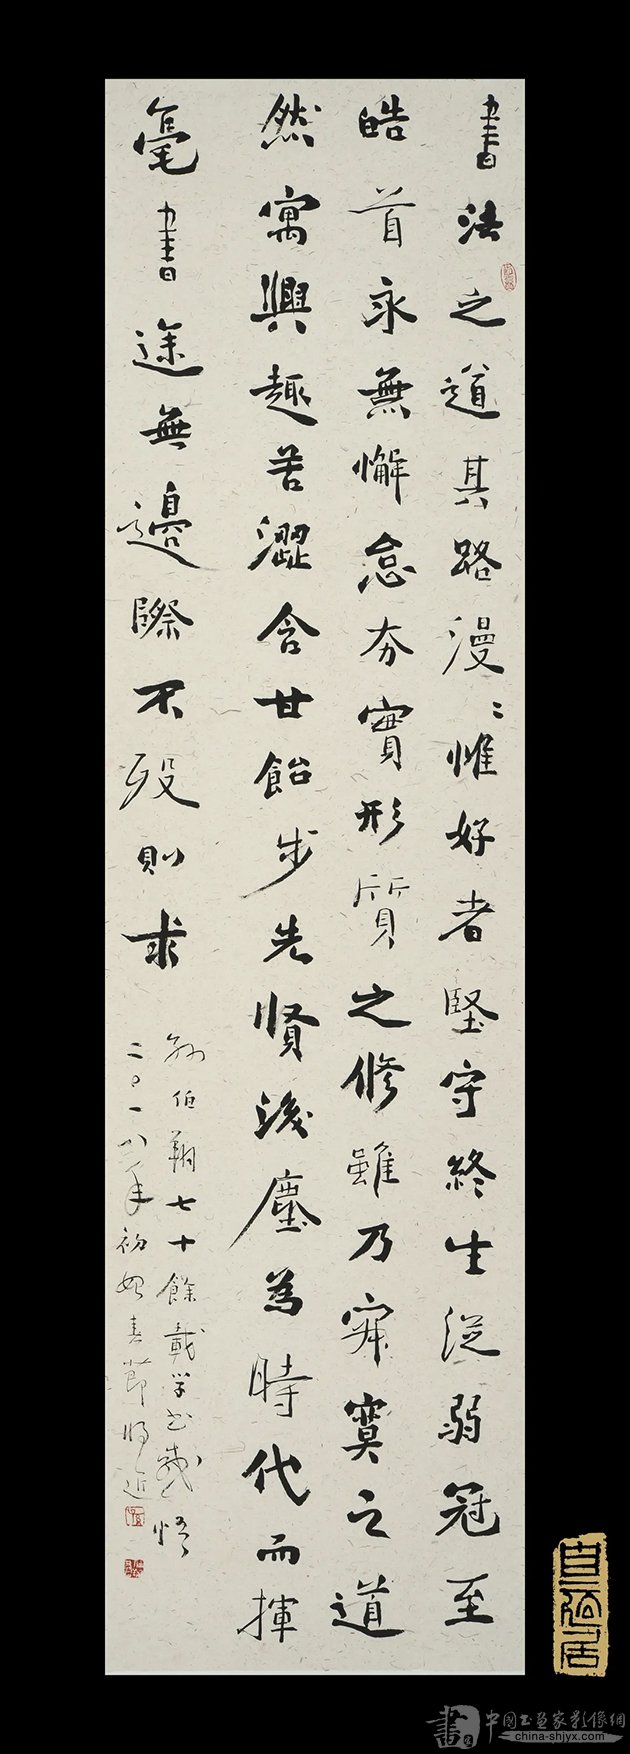 書法之道其路漫〻惟好者堅守終生從弱冠至
皓首永無懈怠夯實形質之修雖乃寂寞之道
然寓興趣苦澀含甘飴步先賢後塵為時代而揮
毫書途無邊際不殁則求
孙伯翔七十餘載学书感悟
二〇一八年初始春節将近
自弨居
書
中國书画家影像網
china-shjyx.com